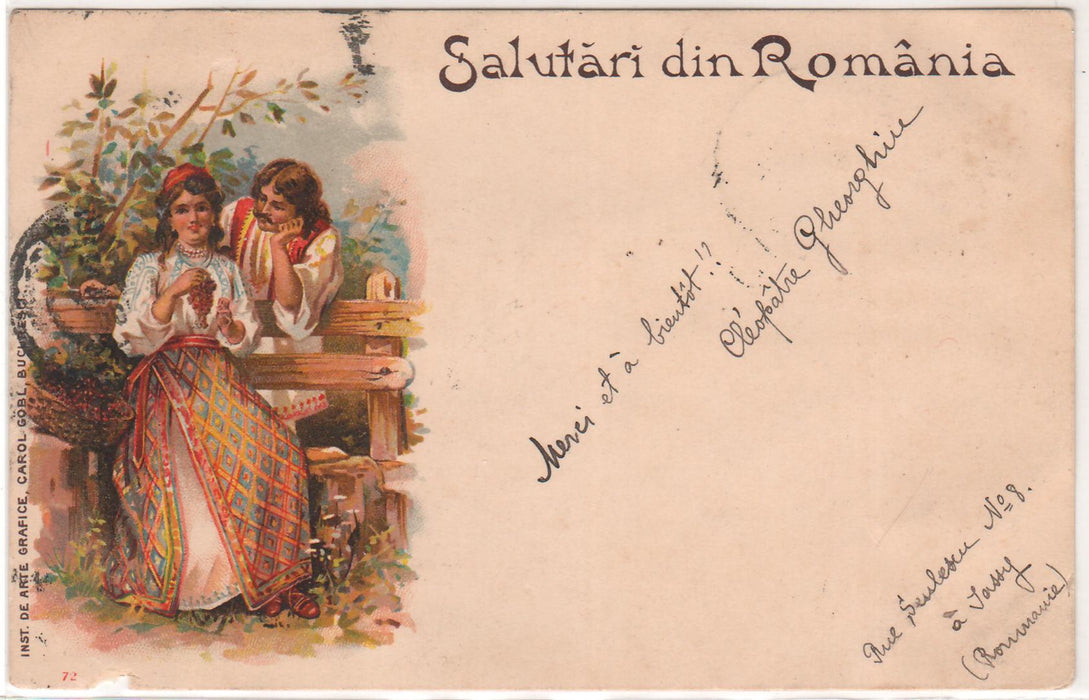 Salutări din România
Merci et à bientôt!?
Cléopâtre Gheorghiu
Rue Șeulescu No 8.
à Jassy
(Roumanie)
INST. DE ARTE GRAFICE, CAROL GÖBL, BUCUREȘTI.
72